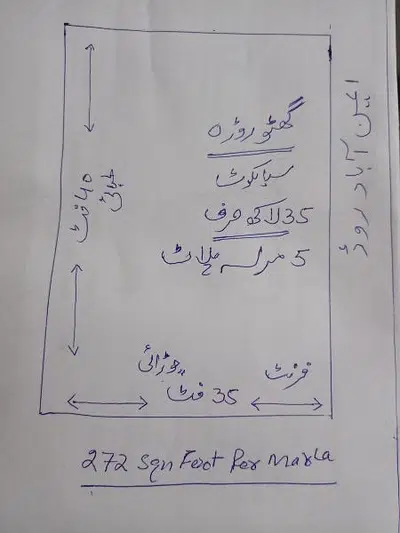 گھٹو روڑہ
سیالکوٹ
35 لاکھ صرف
5 مرلہ پلاٹ
لمبائی
40 فٹ
چوڑائی
35 فٹ
فرنٹ
ایمن آباد روڈ
272 Sqn Foot Per Marla